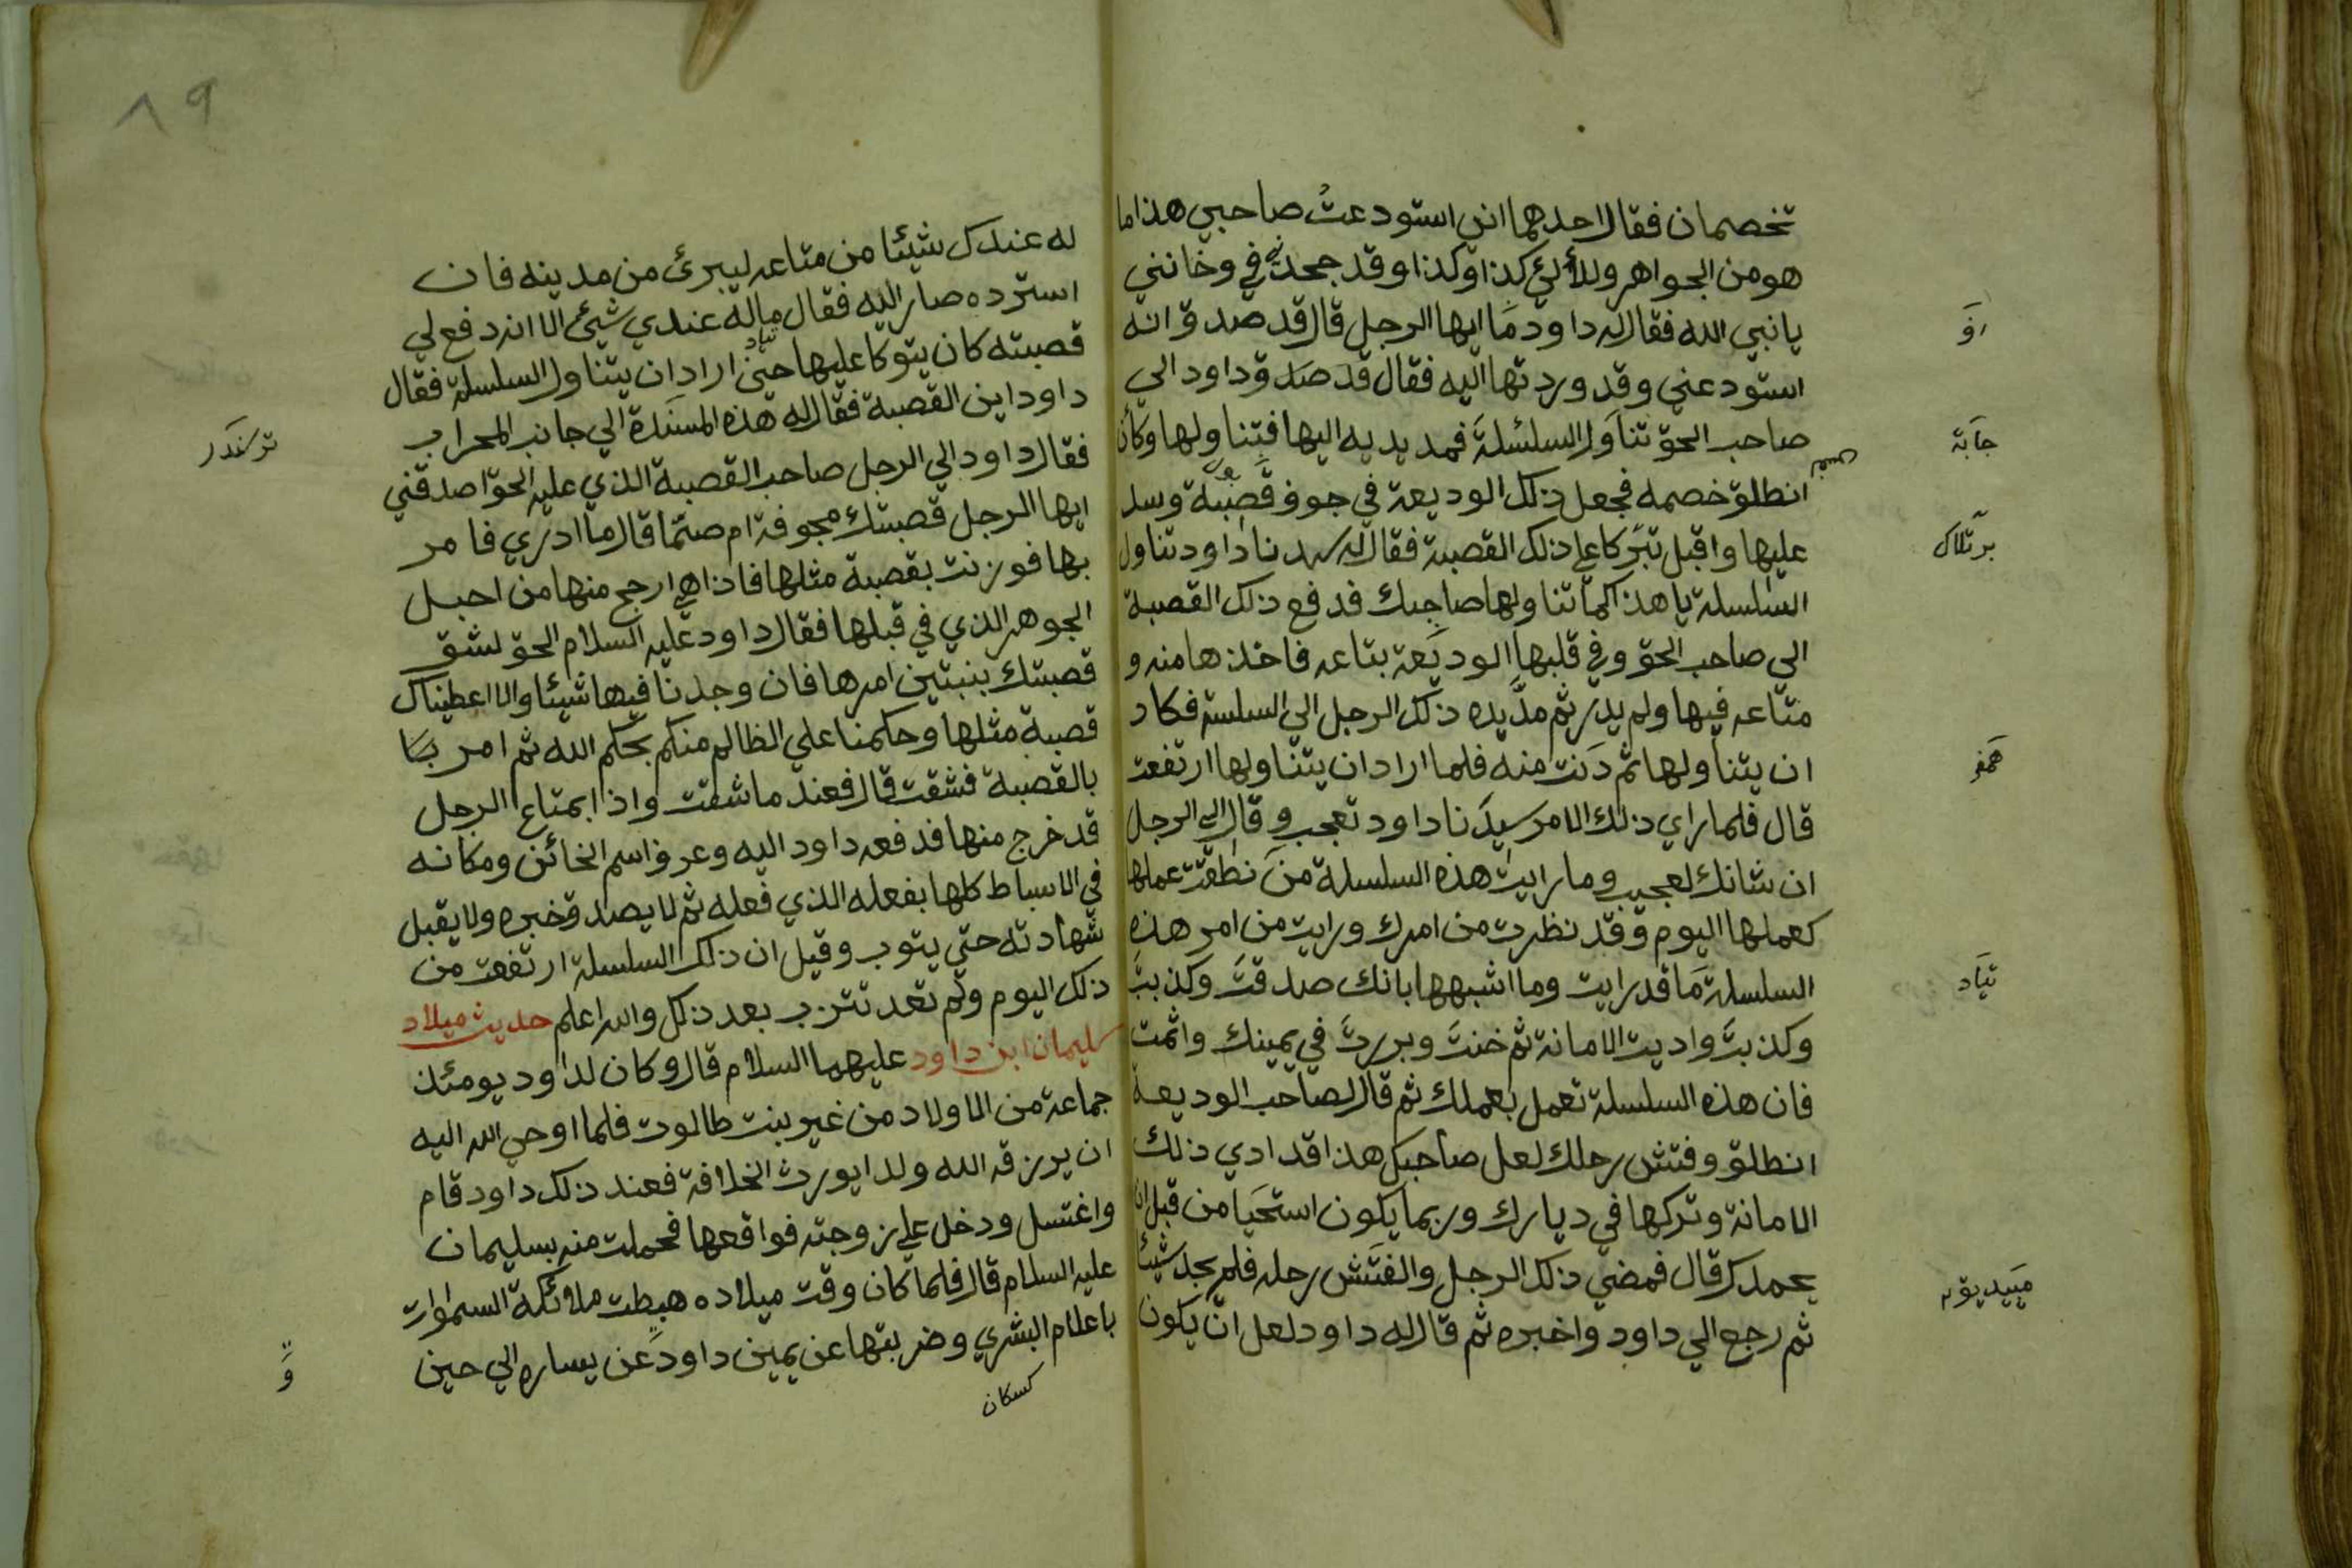 تخصمان فقال احدهما اني استودعتُ صاحبي هذا ما
هو من الجواهر وللألئ كذا وكذا وقد جحدني في وخانني
يا نبي الله فقال له داود مَا ايها الرجل قال قد صدق انه
استودعني وقد ورد تها اليه فقال قد صَدق داود الي
صاحب الحق تناوَل السلسلةَ فمد يديه اليها فتناولها وكان
انطلق خصمه فجعل ذلك الوديعة في جوف قصبة وسد
عليها واقبل تبركا علي ذلك القصبة فقال له سيدنا داود تناول
السلسلة يا هذا كما تناولها صاحبك فدفع ذلك القصبة
الى صاحب الحق وفي قلبها الوديعة بتاعه فاخذها منه و
متاعه فيها ولم يدر ثم مدَّ يده ذلك الرجل الي السلسة فكاد
ان يتناولها ثم دَنت منه فلما اراد ان يتناولها ارتفعت
قال فلما راي ذلك الامر سيدَنا داود تعجب وقال الي الرجل
ان شانك لعجيب وما رايت هذه السلسلة منَ نطقت عملها
كعملها اليوم وفقد نظرت من امرك ورايت من امر هذه
السلسلة مَا قد رايت وما اشبهها بانك صدقتَ وكذبتَ
وكذبتَ واديت الامانة ثم خنتَ وبررتَ في يمينك واثمت
فان هذه السلسلة تعمل بعملك ثم قال لصاحب الوديعة
انطلق وفتش رحلك لعل صاحبك هذا قد ادي ذلك
الامانة وتركها في ديارك وربما يكون استحَيا من قبل ان
يحمدك قال فمضي ذلك الرجل والفتَش رحله فلم يجد شيئا
ثم رجع الي داود واخبره ثم قال له داود لعل ان يكون
روَ
جاَبة
برتلاك
همَفو
تيَاد
مَييديقه
له عندك شيئا من متاعه ليبرئ من مدينه فان
استرده صار اليه فقال ماله عندي شيئ الا انه دفع لي
قصبته كان يتوكا عليها حتى اراد ان يتناول السلسلة فقال
تياد
داود اين القصبة فقال له هذه المسنَدة الي جانب المحراب
فقال داود الي الرجل صاحب القصبة الذي عليه الحق اصدقني
ايها الرجل قصبتك مجوفة ام صمّا قال ما ادري فامر
بها فوزنت بقصبة مثلها فاذا هي ارجح منها من احبل
الجوهر الذي في قبلها فقال داود عليه السلام الحق لشق
قصبتك بنبتين امرها فان وجدنا فيها شيئا والا اعطيناك
قصبة مثلها وحكمنا علي الظالم منكم بحكم الله ثم امر بـا
بالقصبة فشقت قال فعند ما شقت واذا بمتاع الرجل
قد خرج منها فدفعه داود اليه وعرف اسم الخائن ومكانه
في الاسباط كلها بفعله الذي فعله ثم لا يصدق خبره ولا يقبل
شهادته حتي يتوب وقيل ان ذلك السلسلة ارتفعت من
ذلك اليوم ولم تعد تترب بعد ذلك والله اعلم حديث ميلاد
سليمان ابن داود عليهما السلام قال وكان لداود يومئذ
جماعة من الاولاد من غير بنت طالوت فلما اوحي الله اليه
ان يرزقه الله ولدا يورث الخلافة فعند ذلك داود قام
واغتسل ودخل علي زوجته فواقعها فحملت منه بسليمان
عليه السلام قال فلما كان وقت ميلاده هبطت ملائكة السموات
باعلام البشري وضربتها عن يمين داود عن يساره الي حين
كسكان
ترسَندَر
وَ
٨٩